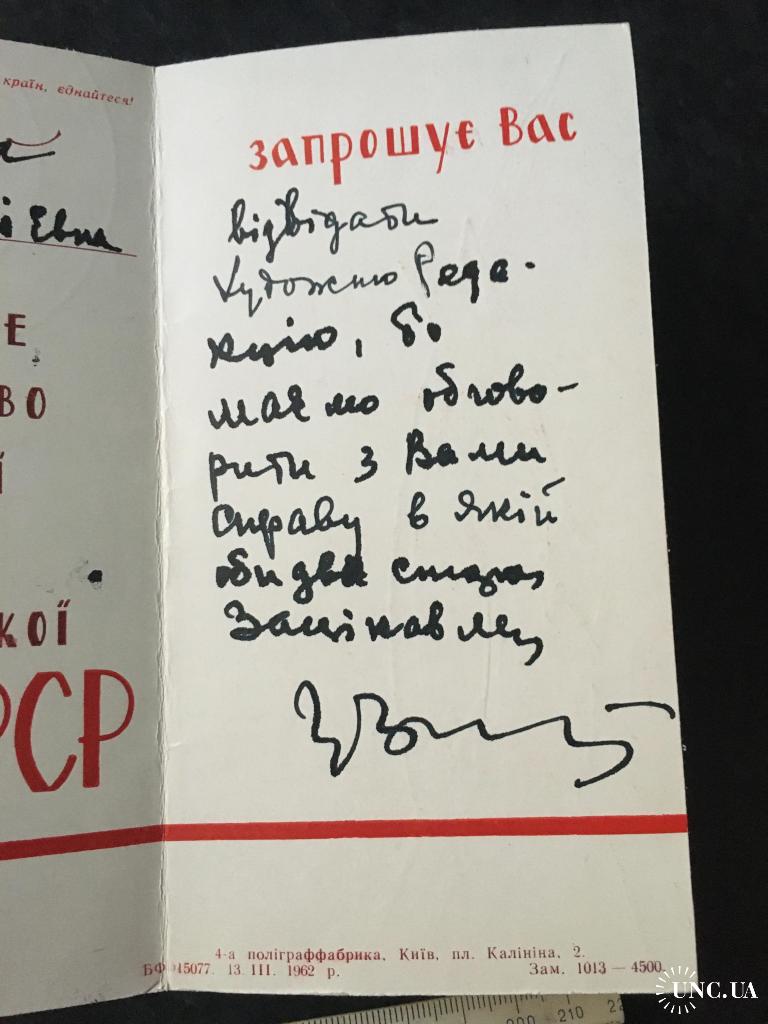 країн, єднайтеся!
Евна
Е
ВО
Ї
КОЇ
РСР
запрошує Вас
відвідати
художню Реда-
кцію, бо
маємо обгово-
рити з Вами
справу в якій
обидві сторони
Зацікавлені
4-а поліграффабрика, Київ, пл. Калініна, 2.
БФ 15077. 13. III. 1962 р. Зам. 1013 — 4500
200 210 22
UNC.UA